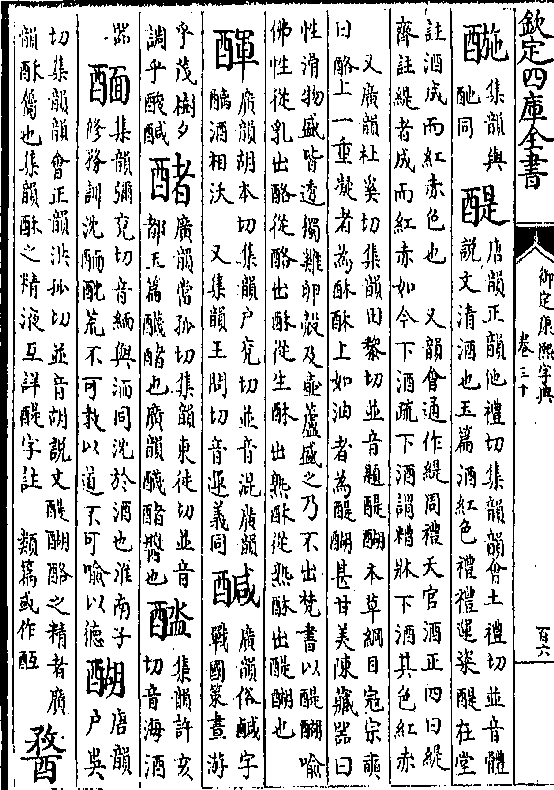 欽定四庫全書
御定康熙字典
卷三十
百六
集韻與
酏同
醍
唐韻正韻他禮切集韻韻會土禮切並音體
說文清酒也玉篇酒紅色禮禮運粢醍在堂
註酒成而紅赤色也 又韻會通作緹周禮天官酒正四曰緹
齊註緹者成而紅赤如今下酒疏下酒謂糟牀下酒其色紅赤
又廣韻杜奚切集韻田黎切並音題醍醐本草綱目寇宗奭
曰酪上一重凝者為酥酥上如油者為醍醐甚甘美陳藏器曰
性滑物盛皆透獨雞卵殻及壷蘆盛之乃不出梵書以醍醐喻
佛性從乳出酪從酪出酥從生酥出熟酥從熟酥出醍醐也
廣韻胡本切集韻戶兗切並音混廣韻
醨酒相沃 又集韻王問切音運義同
醎
廣韻俗鹹字
戰國策晝游
乎茂樹夕
調乎酸醎
廣韻當孤切集韻東徒切並音
都玉篇 也廣韻 醬也
集韻許亥
切音海酒
器
集韻彌兗切音緬與湎同沈於酒也淮南子
修務訓沈 荒不可教以道不可喻以德
醐
唐韻
戶吳
切集韻韻會正韻洪孤切並音胡說文醍醐酪之精者廣
韻酥屬也集韻酥之精液互詳醍字註 類篇或作